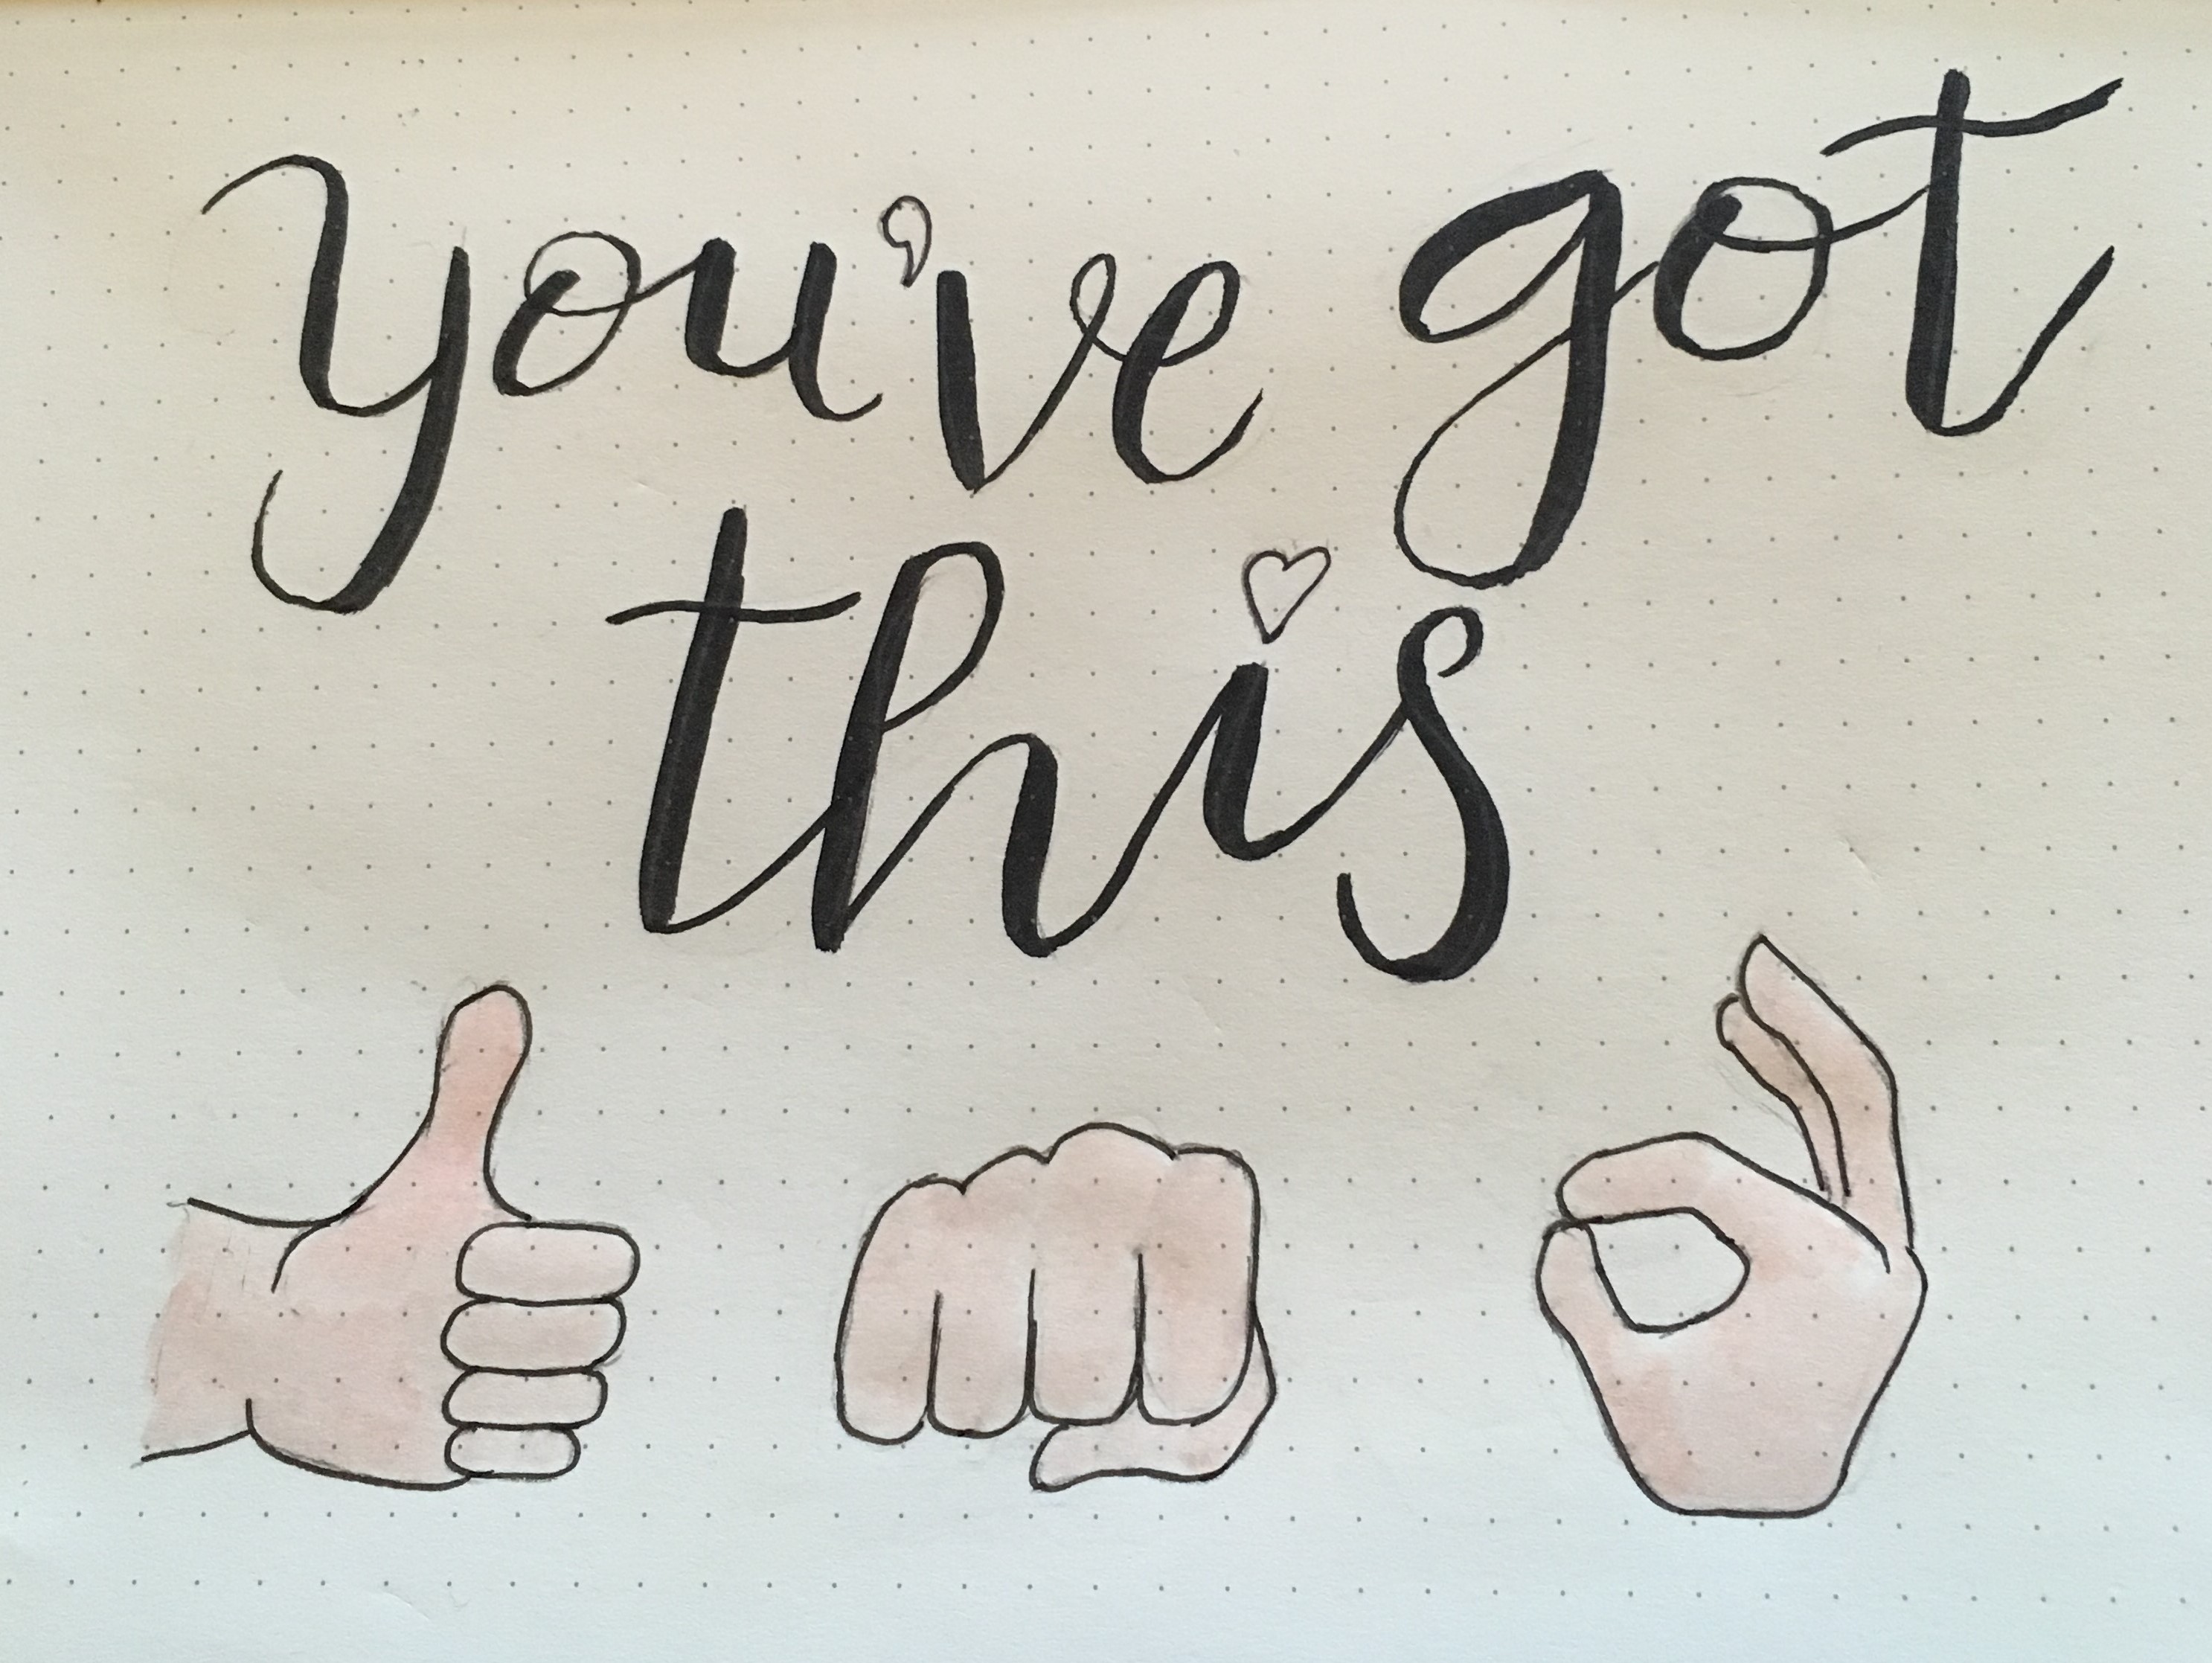 you've got
this